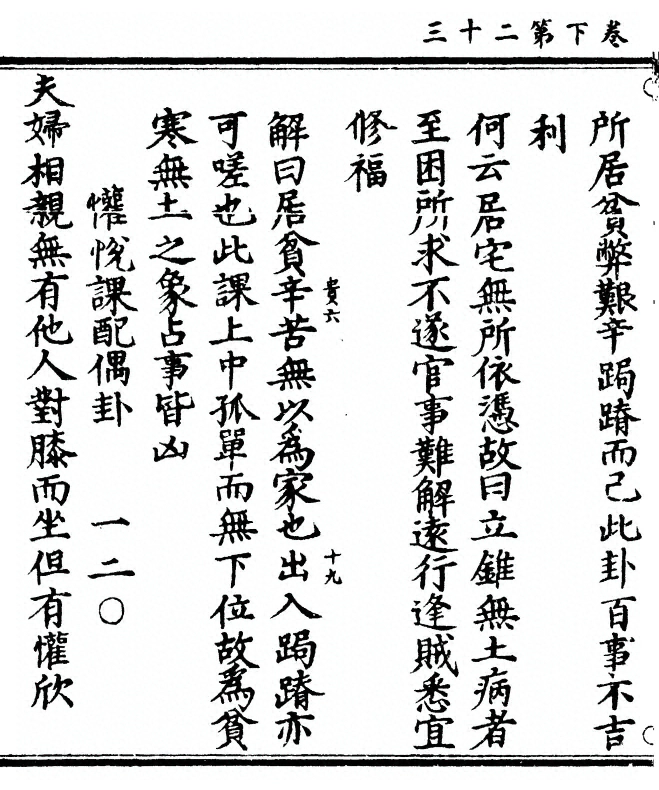 卷下第二十三
所居貧弊艱辛跼蹐而已此卦百事不吉
利
何云居宅無所依憑故曰立錐無土病者
至困所求不遂官事難解遠行逢賊悉宜
修福
解曰居貧辛苦無以為家也出入跼蹐亦
貴六
十九
可嗟也此課上中孤單而無下位故為貧
寒無土之象占事皆凶
懽悅課配偶卦 一二〇
夫婦相親無有他人對膝而坐但有懽欣